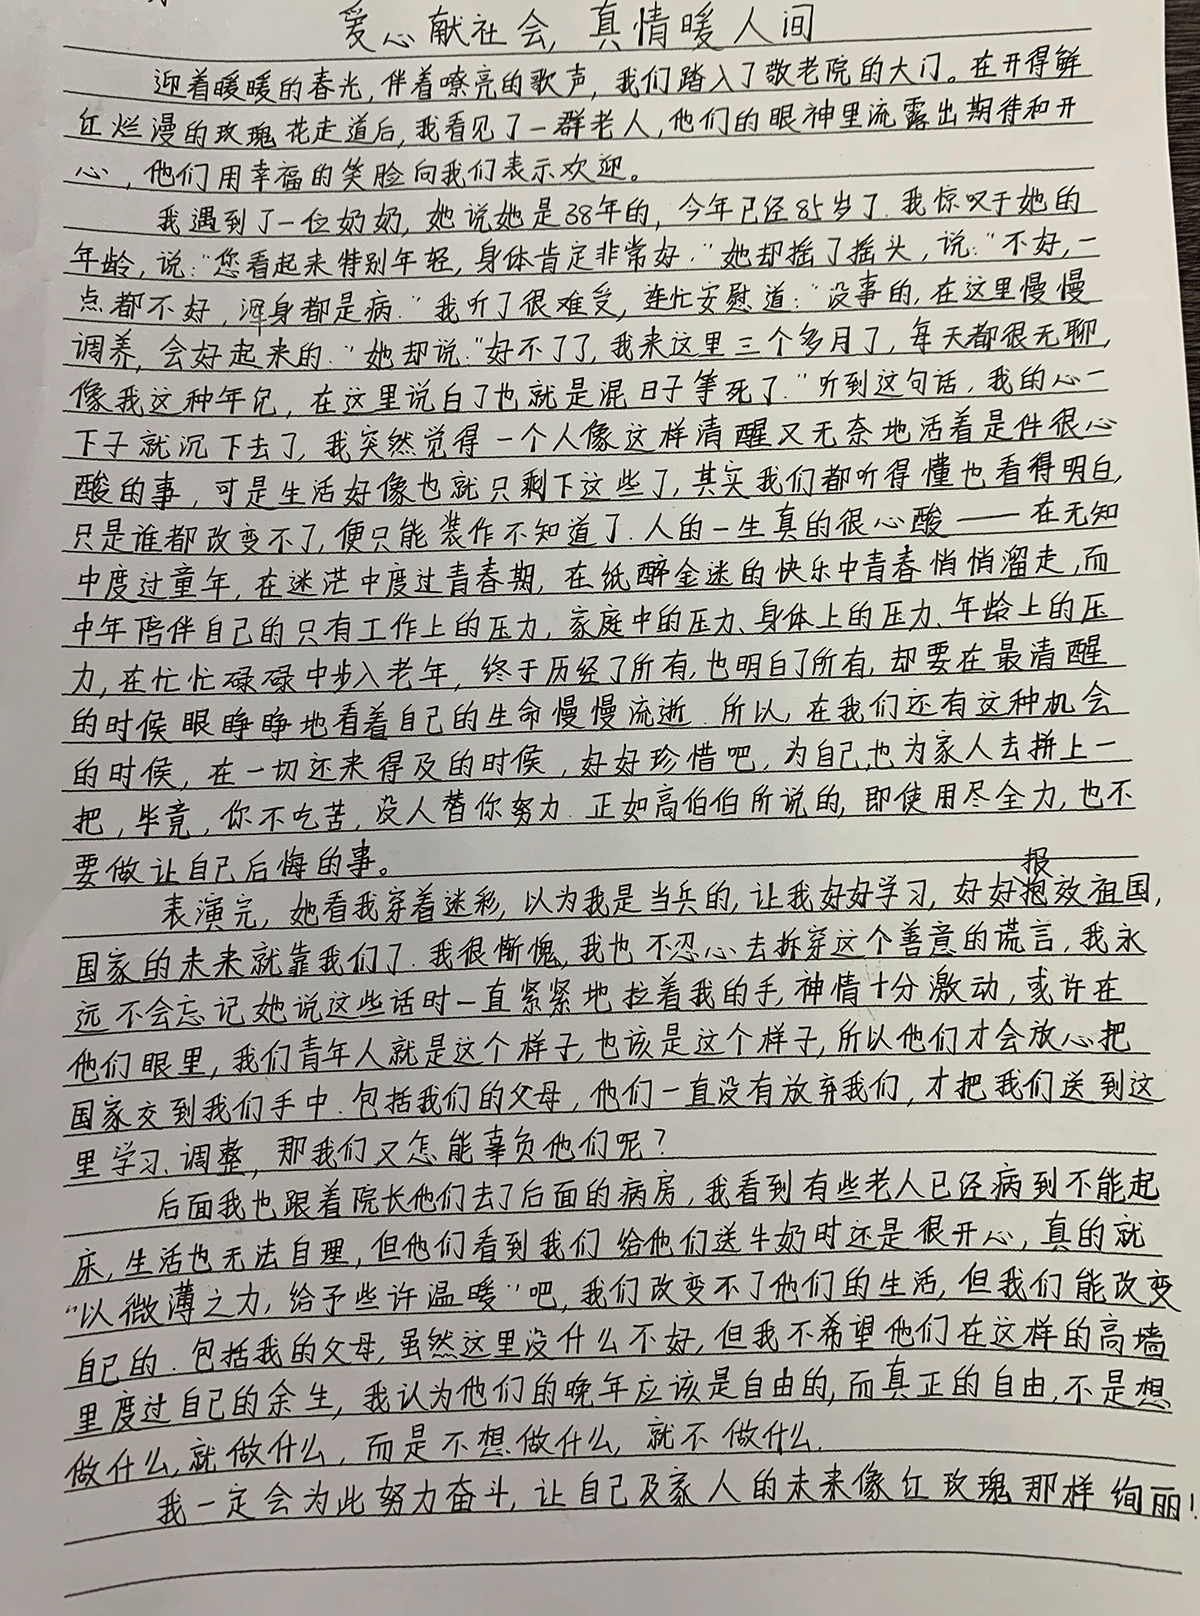 爱心献社会,真情暖人间
迎着暖暖的春光,伴着嘹亮的歌声,我们踏入了敬老院的大门。在开得鲜
红烂漫的玫瑰花走道后,我看见了一群老人,他们的眼神里流露出期待和开
心,他们用幸福的笑脸向我们表示欢迎。
我遇到了一位奶奶,她说她是38年的,今年已经85岁了.我惊叹于她的
年龄,说:“您看起来特别年轻,身体肯定非常好.”她却摇了摇头,说:“不好,一
点都不好,浑身都是病.”我听了很难受,连忙安慰道:“没事的,在这里慢慢
调养,会好起来的.”她却说:“好不了了,我来这里三个多月了,每天都很无聊,
像我这种年纪,在这里说白了也就是混日子等死了.”听到这句话,我的心一
下子就沉下去了,我突然觉得一个人像这样清醒又无奈地活着是件很心
酸的事,可是生活好像也就只剩下这些了,其实我们都听得懂也看得明白,
只是谁都改变不了,便只能装作不知道了.人的一生真的很心酸——在无知
中度过童年,在迷茫中度过青春期,在纸醉金迷的快乐中青春悄悄溜走,而
中年陪伴自己的只有工作上的压力,家庭中的压力、身体上的压力、年龄上的压
力,在忙忙碌碌中步入老年,终于历经了所有,也明白了所有,却要在最清醒
的时候眼睁睁地看着自己的生命慢慢流逝.所以,在我们还有这种机会
的时候,在一切还来得及的时候,好好珍惜吧,为自己,也为家人去拼上一
把,毕竟,你不吃苦,没人替你努力.正如高伯伯所说的,即使用尽全力,也不
要做让自己后悔的事。
表演完,她看我穿着迷彩,以为我是当兵的,让我好好学习,好好报效祖国,
国家的未来就靠我们了.我很惭愧,我也不忍心去拆穿这个善意的谎言,我永
远不会忘记她说这些话时一直紧紧地拉着我的手,神情十分激动,或许在
他们眼里,我们青年人就是这个样子,也该是这个样子,所以他们才会放心把
国家交到我们手中.包括我们的父母,他们一直没有放弃我们,才把我们送到这
里学习、调整,那我们又怎能辜负他们呢?
后面我也跟着院长他们去了后面的病房,我看到有些老人已经病到不能起
床,生活也无法自理,但他们看到我们给他们送牛奶时还是很开心,真的就
“以微薄之力,给予些许温暖”吧,我们改变不了他们的生活,但我们能改变
自己的.包括我的父母,虽然这里没什么不好,但我不希望他们在这样的高墙
里度过自己的余生,我认为他们的晚年应该是自由的,而真正的自由,不是想
做什么,就做什么,而是不想做什么,就不做什么.
我一定会为此努力奋斗,让自己及家人的未来像红玫瑰那样绚丽!